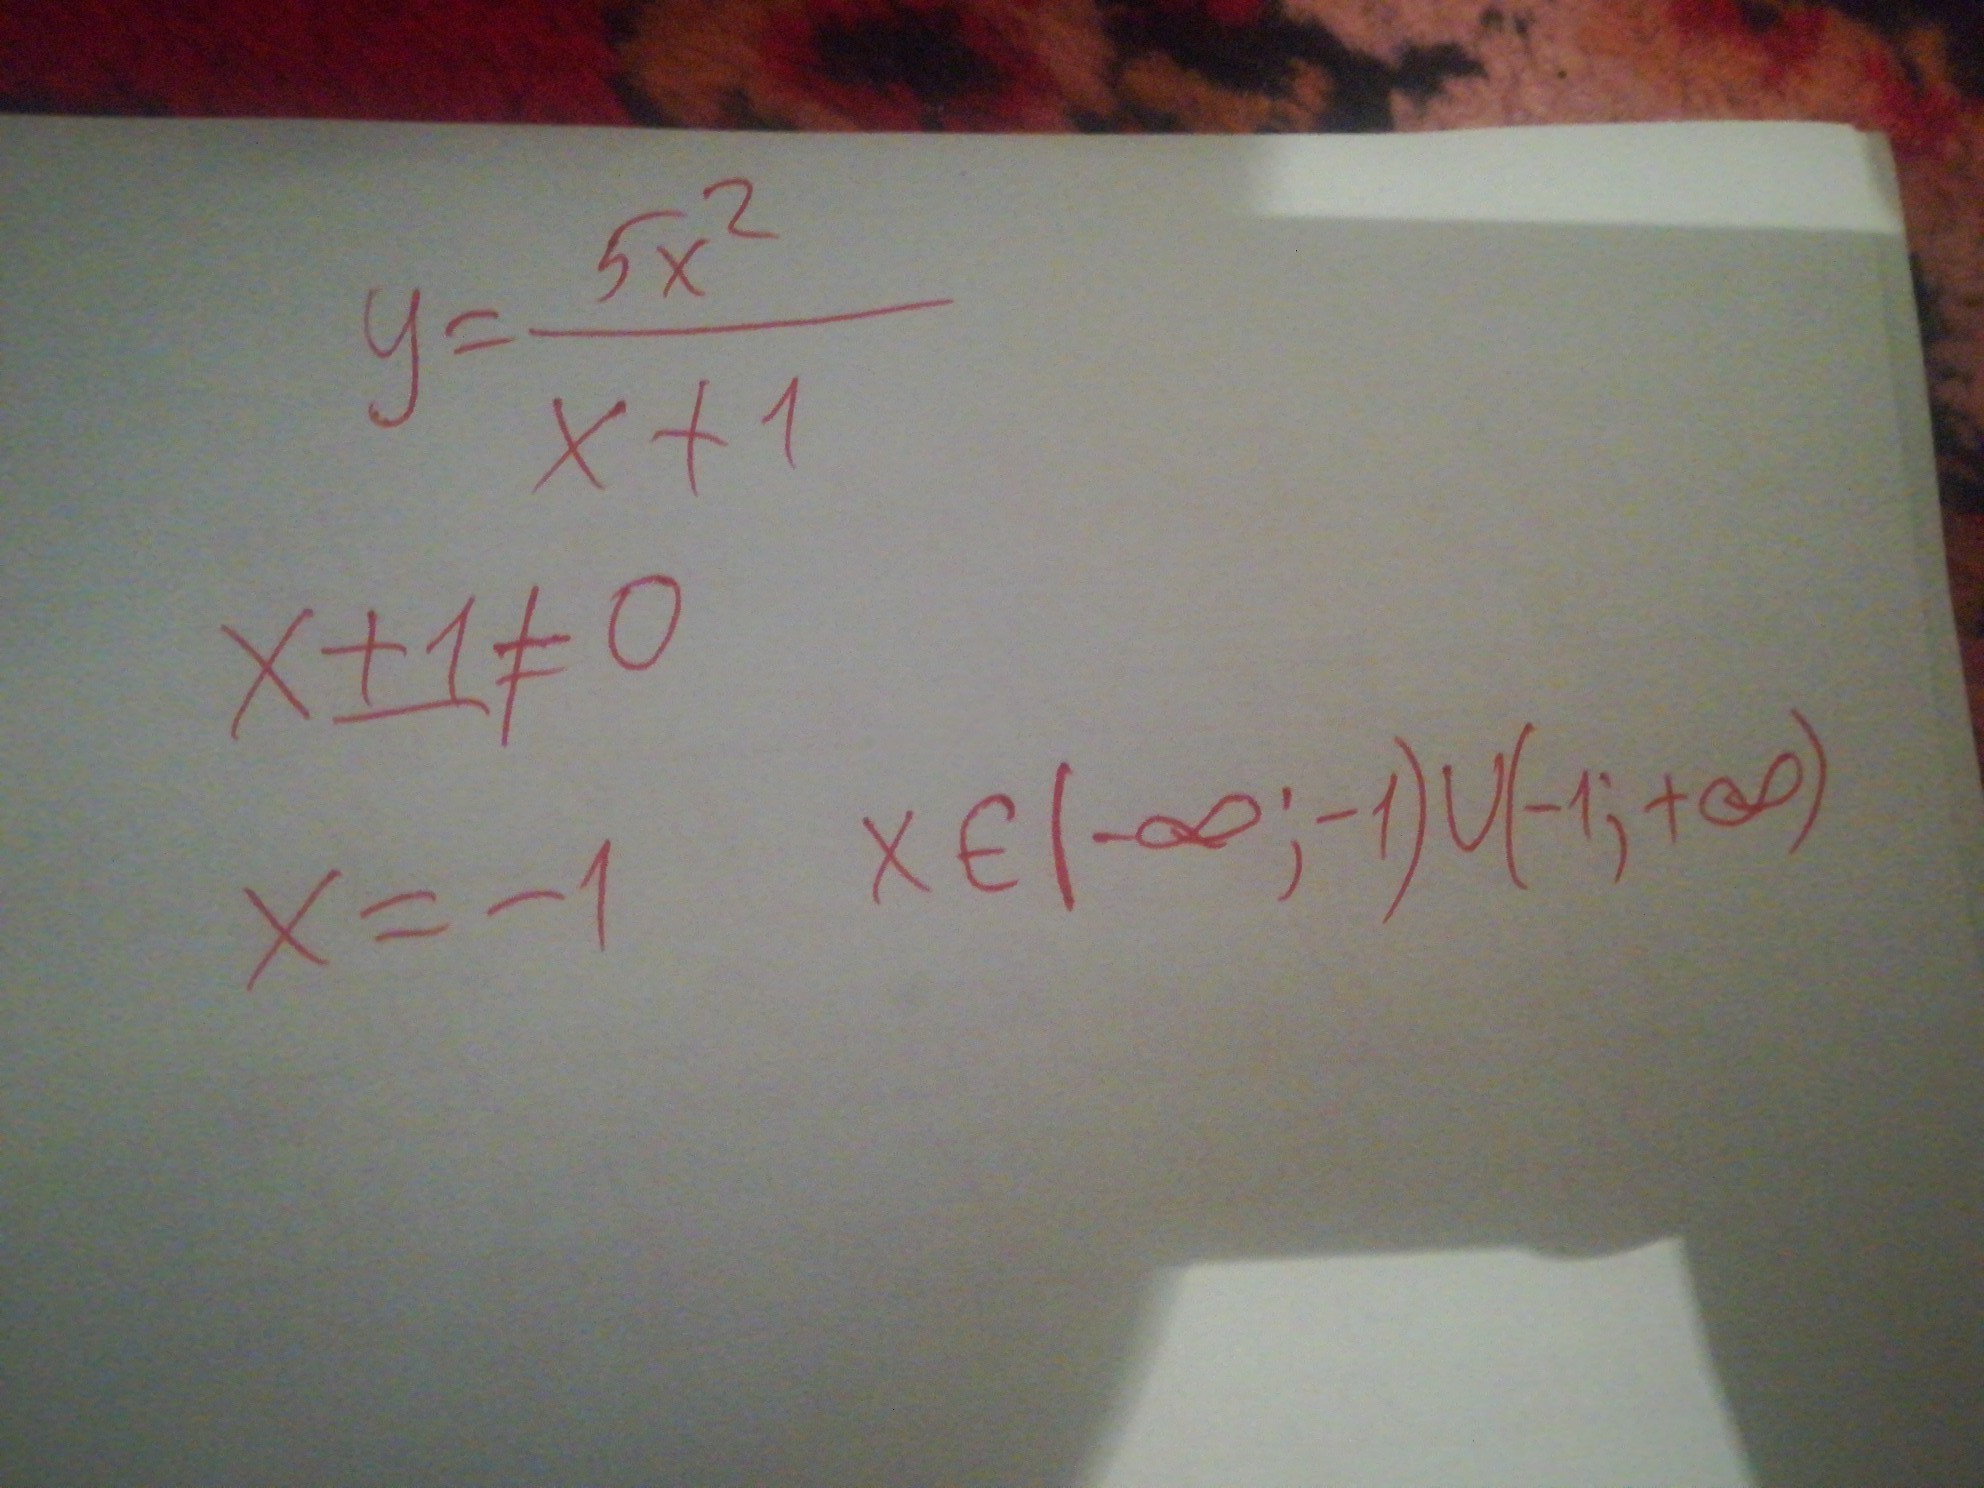 y = 5x² / x + 1
x + 1 ≠ 0
x = -1
x ∈ (-∞; -1) ∪ (-1; +∞)